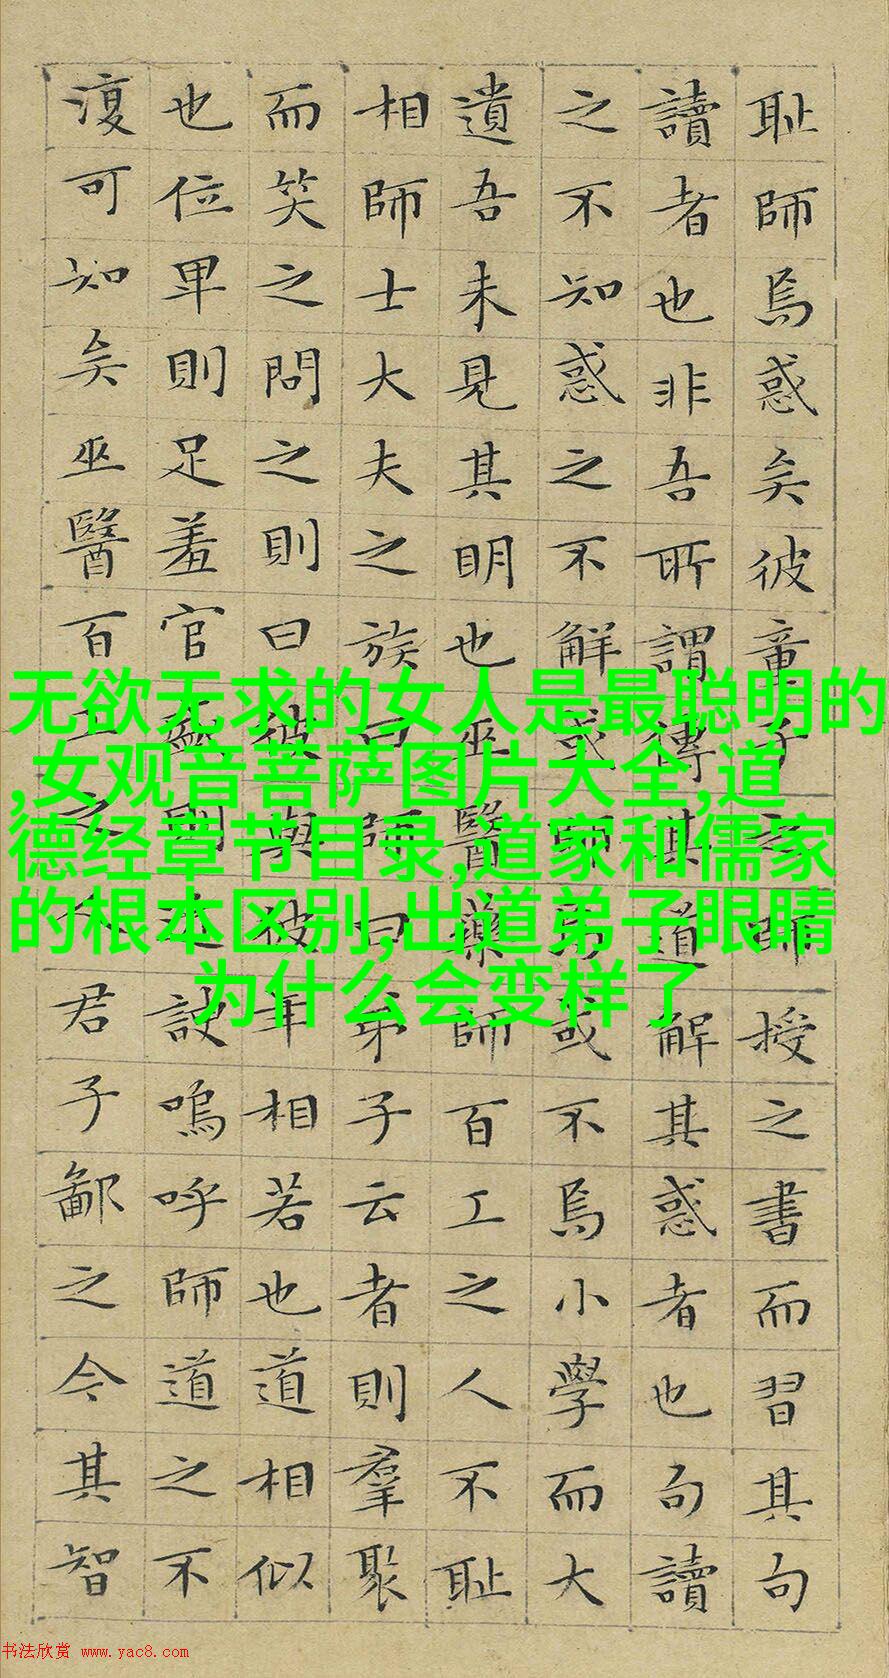 耻師焉惑矣彼童子之師授之書而習其句
讀者也非吾所謂傳其道解其惑者也句讀
之不知惑之不解或師焉或不焉小學而大
遺吾未見其明也巫醫藥師百工之人不耻
相師士大夫之族曰師曰弟子云者則羣聚
而笑之問之則曰彼與彼年相若也道相似
也位卑則足羞官盛則近諛嗚呼師道之不
復可知矣巫醫百工之人君子鄙之今其智
无欲无求的女人是最聪明的
,女观音菩萨图片大全,道
德经章节目录,道家和儒家
的根本区别,出道弟子眼睛
为什么会变样了
书法欣赏 www.yac8.com